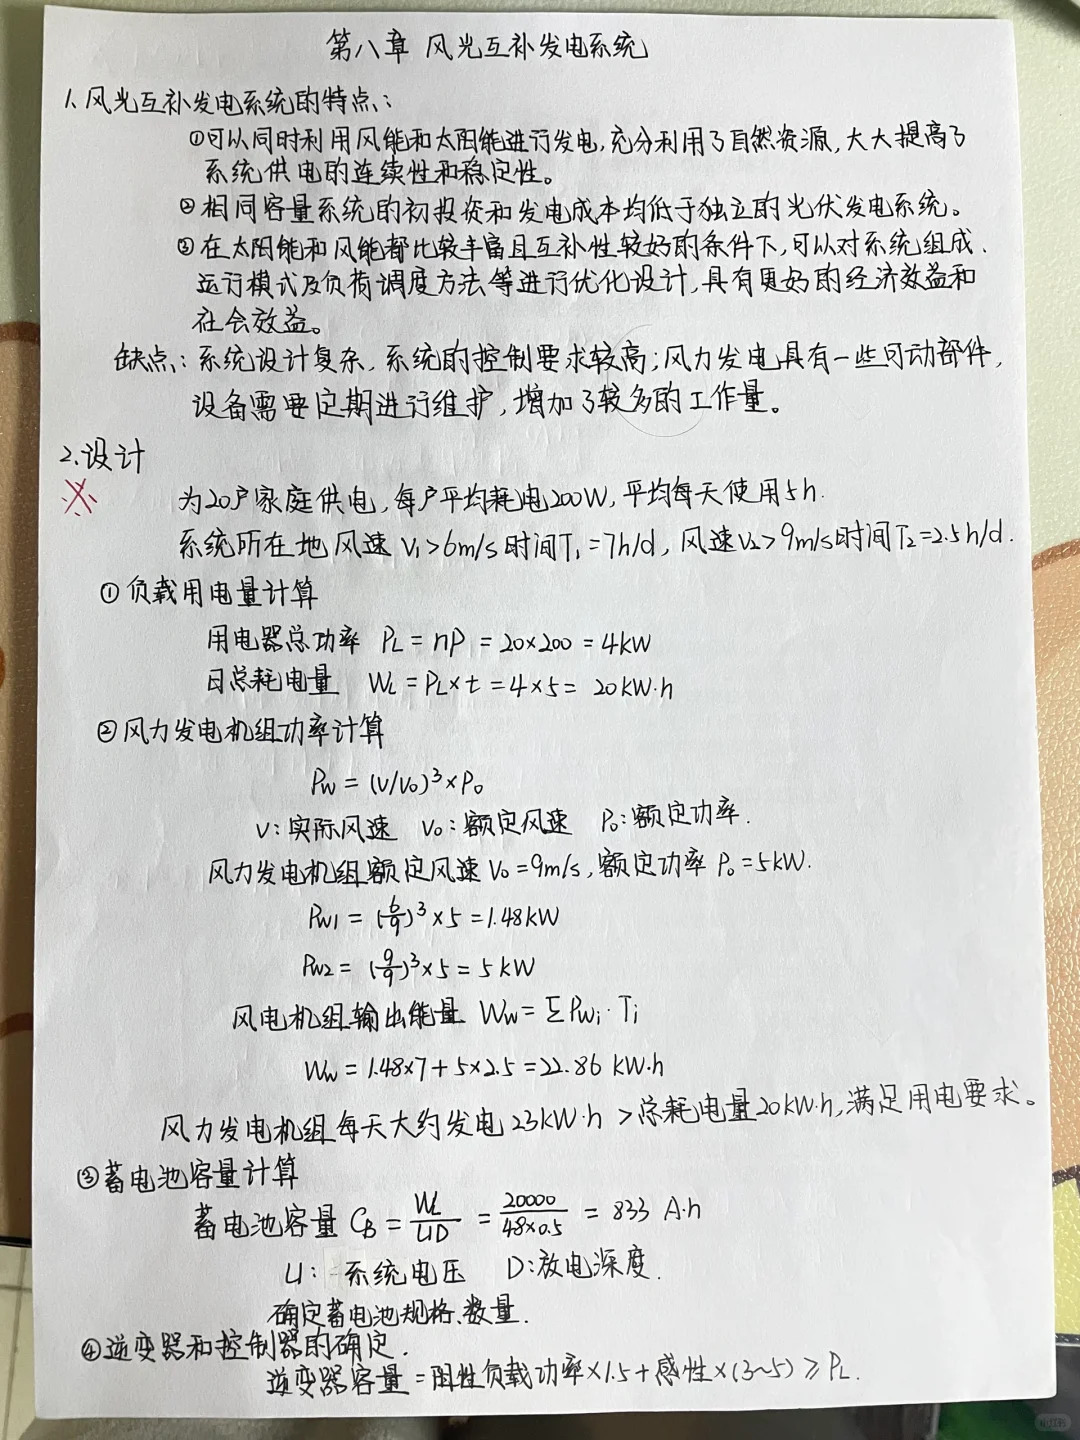 第八章 风光互补发电系统
1、风光互补发电系统的特点：
①可以同时利用风能和太阳能进行发电,充分利用了自然资源,大大提高了
系统供电的连续性和稳定性。
②相同容量系统的初投资和发电成本均低于独立的光伏发电系统。
③在太阳能和风能都比较丰富且互补性较好的条件下,可以对系统组成、
运行模式及负荷调度方法等进行优化设计,具有更好的经济效益和
社会效益。
缺点：系统设计复杂,系统的控制要求较高;风力发电具有一些可动部件,
设备需要定期进行维护,增加了较多的工作量。
2.设计
※ 为20户家庭供电,每户平均耗电200W,平均每天使用5h.
系统所在地风速 V₁>6m/s时间T₁=7h/d,风速V₂>9m/s时间T₂=2.5h/d.
①负载用电量计算
用电器总功率 PL=nP=20×200=4kW
日总耗电量 WL=PL×t=4×5=20kW·h
②风力发电机组功率计算
Pw=(V/V₀)³×P₀
V:实际风速 V₀:额定风速 P₀:额定功率.
风力发电机组额定风速V₀=9m/s,额定功率P₀=5kW.
Pw1=(6/9)³×5=1.48kW
Pw2=(9/9)³×5=5kW
风电机组输出能量 Ww=ΣPwi·Ti
Ww=1.48×7+5×2.5=22.86 kW·h
风力发电机组每天大约发电23kW·h>总耗电量20kW·h,满足用电要求。
③蓄电池容量计算
蓄电池容量 CB=WL/UD=20000/48×0.5=833 A·h
U:系统电压 D:放电深度.
确定蓄电池规格、数量.
④逆变器和控制器的确定.
逆变器容量=阻性负载功率×1.5+感性×(3~5)≥PL.